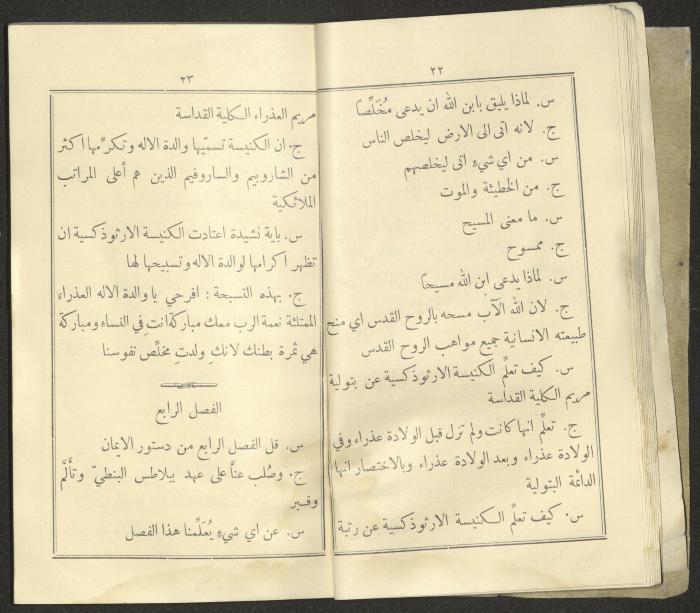 ٢٢
س. لماذا يليق بابن الله ان يدعى مُخَلِّصاً
ج. لانه اتى الى الارض ليخلص الناس
س. من اي شيءٍ اتى ليخلصهم
ج. من الخطيئة والموت
س. ما معنى المسيح
ج. ممسوح
س. لماذا يدعى ابن الله مسيحاً
ج. لان الله الآب مسحه بالروح القدس اي منح
طبيعته الانسانية جميع مواهب الروح القدس
س. كيف تعلّم الكنيسة الارثوذكسية عن بتولية
مريم الكلية القداسة
ج. تعلّم انها كانت ولم تزل قبل الولادة عذراء وفي
الولادة عذراء وبعد الولادة عذراء وبالاختصار انها
الدائمة البتولية
س. كيف تعلّم الكنيسة الارثوذكسية عن رتبة
٢٣
مريم العذراء الكلية القداسة
ج. ان الكنيسة تسمّيها والدة الاله وتكرّمها اكثر
من الشاروبيم والساروفيم الذين هم أعلى المراتب
الملائكية
س. باية نشيدة اعتادت الكنيسة الارثوذكسية ان
تظهر اكرامها لوالدة الاله وتسبيحها لها
ج. بهذه التسبحة : افرحي يا والدة الاله العذراء
الممتلئة نعمة الرب معك مباركة انتِ في النساء ومباركة
هي ثمرة بطنك لانكِ ولدتِ مخلّص نفوسنا
الفصل الرابع
س. قل الفصل الرابع من دستور الايمان
ج. وصُلب عنَّا على عهد بيلاطس البنطيّ وتأَلَّم
وقبر
س. عن اي شيءٍ يُعَلِّمنا هذا الفصل